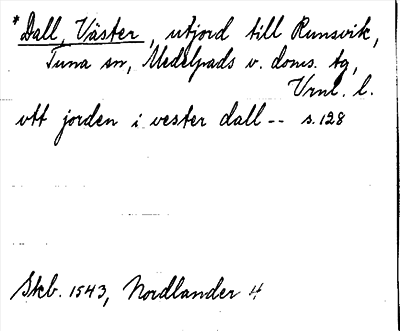 *Dall, Väster, utjord till Runsvik,
Tuna sn, Medelpads v. doms. tg,
Vrnl. l.
vtt jorden i vester dall -- s. 128
Skb. 1543, Nordlander H